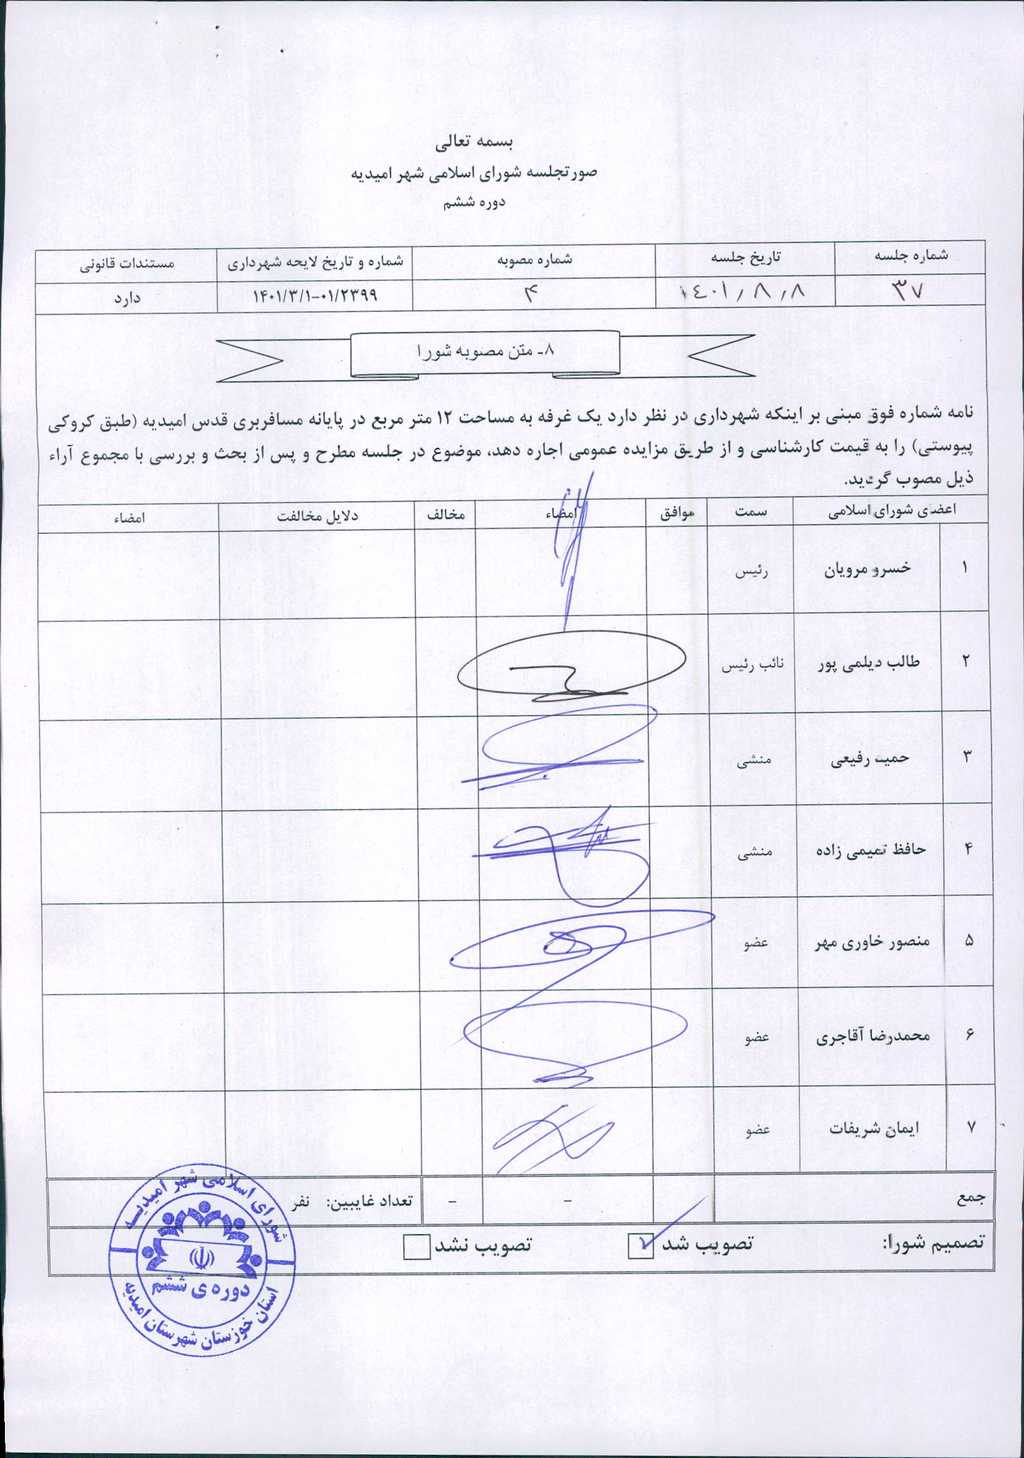 بسمه تعالی
صورتجلسه شورای اسلامی شهر امیدیه
دوره ششم
شماره جلسه
تاریخ جلسه
شماره مصوبه
شماره و تاریخ لایحه شهرداری
مستندات قانونی
۳۷
۱۴۰۱/۸/۸
۴
۱۴۰۱/۳/۱-۰۱/۲۳۹۹
دارد
۸- متن مصوبه شورا
نامه شماره فوق مبنی بر اینکه شهرداری در نظر دارد یک غرفه به مساحت ۱۲ متر مربع در پایانه مسافربری قدس امیدیه (طبق کروکی
پیوستی) را به قیمت کارشناسی و از طریق مزایده عمومی اجاره دهد، موضوع در جلسه مطرح و پس از بحث و بررسی با مجموع آراء
ذیل مصوب گردید.
اعضای شورای اسلامی
سمت
موافق
امضاء
مخالف
دلایل مخالفت
امضاء
۱ خسرو مرویان رئیس
۲ طالب دیلمی پور نائب رئیس
۳ حمید رفیعی منشی
۴ حافظ تمیمی زاده منشی
۵ منصور خاوری مهر عضو
۶ محمدرضا آقاجری عضو
۷ ایمان شریفات عضو
جمع - - تعداد غایبین: نفر
تصمیم شورا: تصویب شد تصویب نشد
شورای اسلامی شهر امیدیه
دوره ی ششم
استان خوزستان شهرستان امیدیه